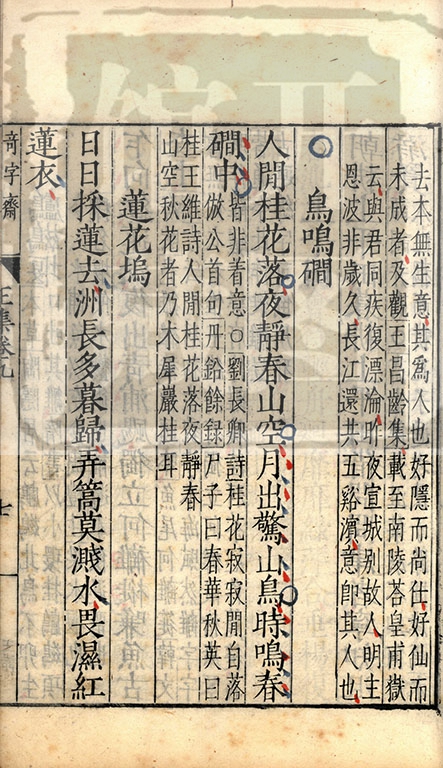 去本無生意其爲人也好隱而尚仕好仙而
未成者及觀王昌齡集載至南陵荅皇甫嶽
云與君同疾復漂淪昨夜宣城别故人明主
恩波非歲久長江還共五谿濱意卽其人也
鳥鳴磵
人閒桂花落夜靜春山空月出驚山鳥時鳴春
磵中
皆非着意○劉長卿詩桂花寂寂閒自落
倣公首句丹鉛餘録尸子曰春華秋英曰
桂王維詩人閒桂花落夜靜春
山空秋花者乃木犀巖桂耳
蓮花塢
日日採蓮去洲長多暮歸弄篙莫濺水畏濕紅
蓮衣
奇字齋
王集卷九
七